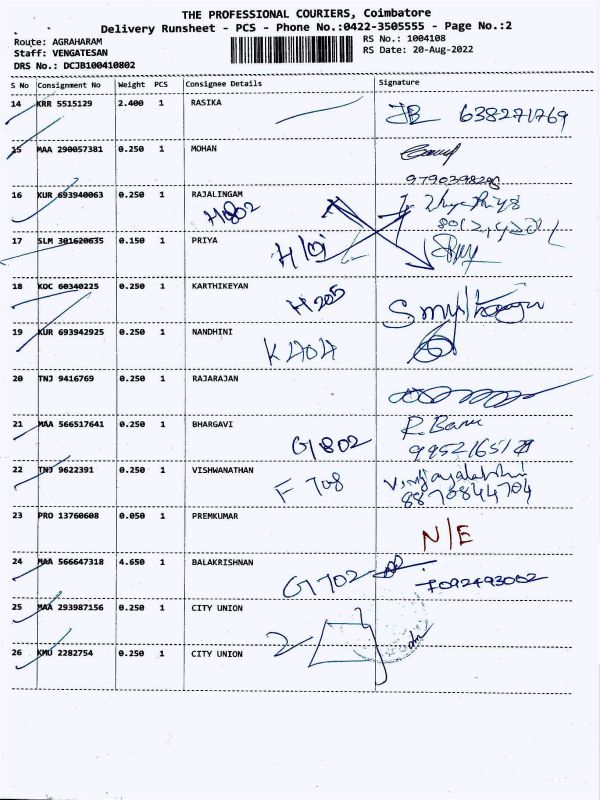 THE PROFESSIONAL COURIERS, Coimbatore
Delivery Runsheet - PCS - Phone No.:0422-3505555 - Page No.:2
Route: AGRAHARAM
RS No.: 1004108
Staff: VENGATESAN
RS Date: 20-Aug-2022
DRS No.: DCJB100410802
S No Consignment No Weight PCS Consignee Details Signature
14 KRR 5515129 2.400 1 RASIKA JB 638271769
15 MAA 290057381 0.250 1 MOHAN
9790398296
16 KUR 693940063 0.250 1 RAJALINGAM
H802
17 SLM 301620635 0.150 1 PRIYA
H101
18 KOC 60340225 0.250 1 KARTHIKEYAN
H205
19 KUR 693942925 0.250 1 NANDHINI
K404
20 TNJ 9416769 0.250 1 RAJARAJAN
21 MAA 566517641 0.250 1 BHARGAVI R. Banu
G1802
22 TNJ 9622391 0.250 1 VISHWANATHAN Vijayalakshmi
F 708 8870844704
23 PRO 13760608 0.050 1 PREMKUMAR
N/E
24 MAA 566647318 4.650 1 BALAKRISHNAN
G1702 7092493002
25 MAA 293987156 0.250 1 CITY UNION
2
26 KMU 2282754 0.250 1 CITY UNION